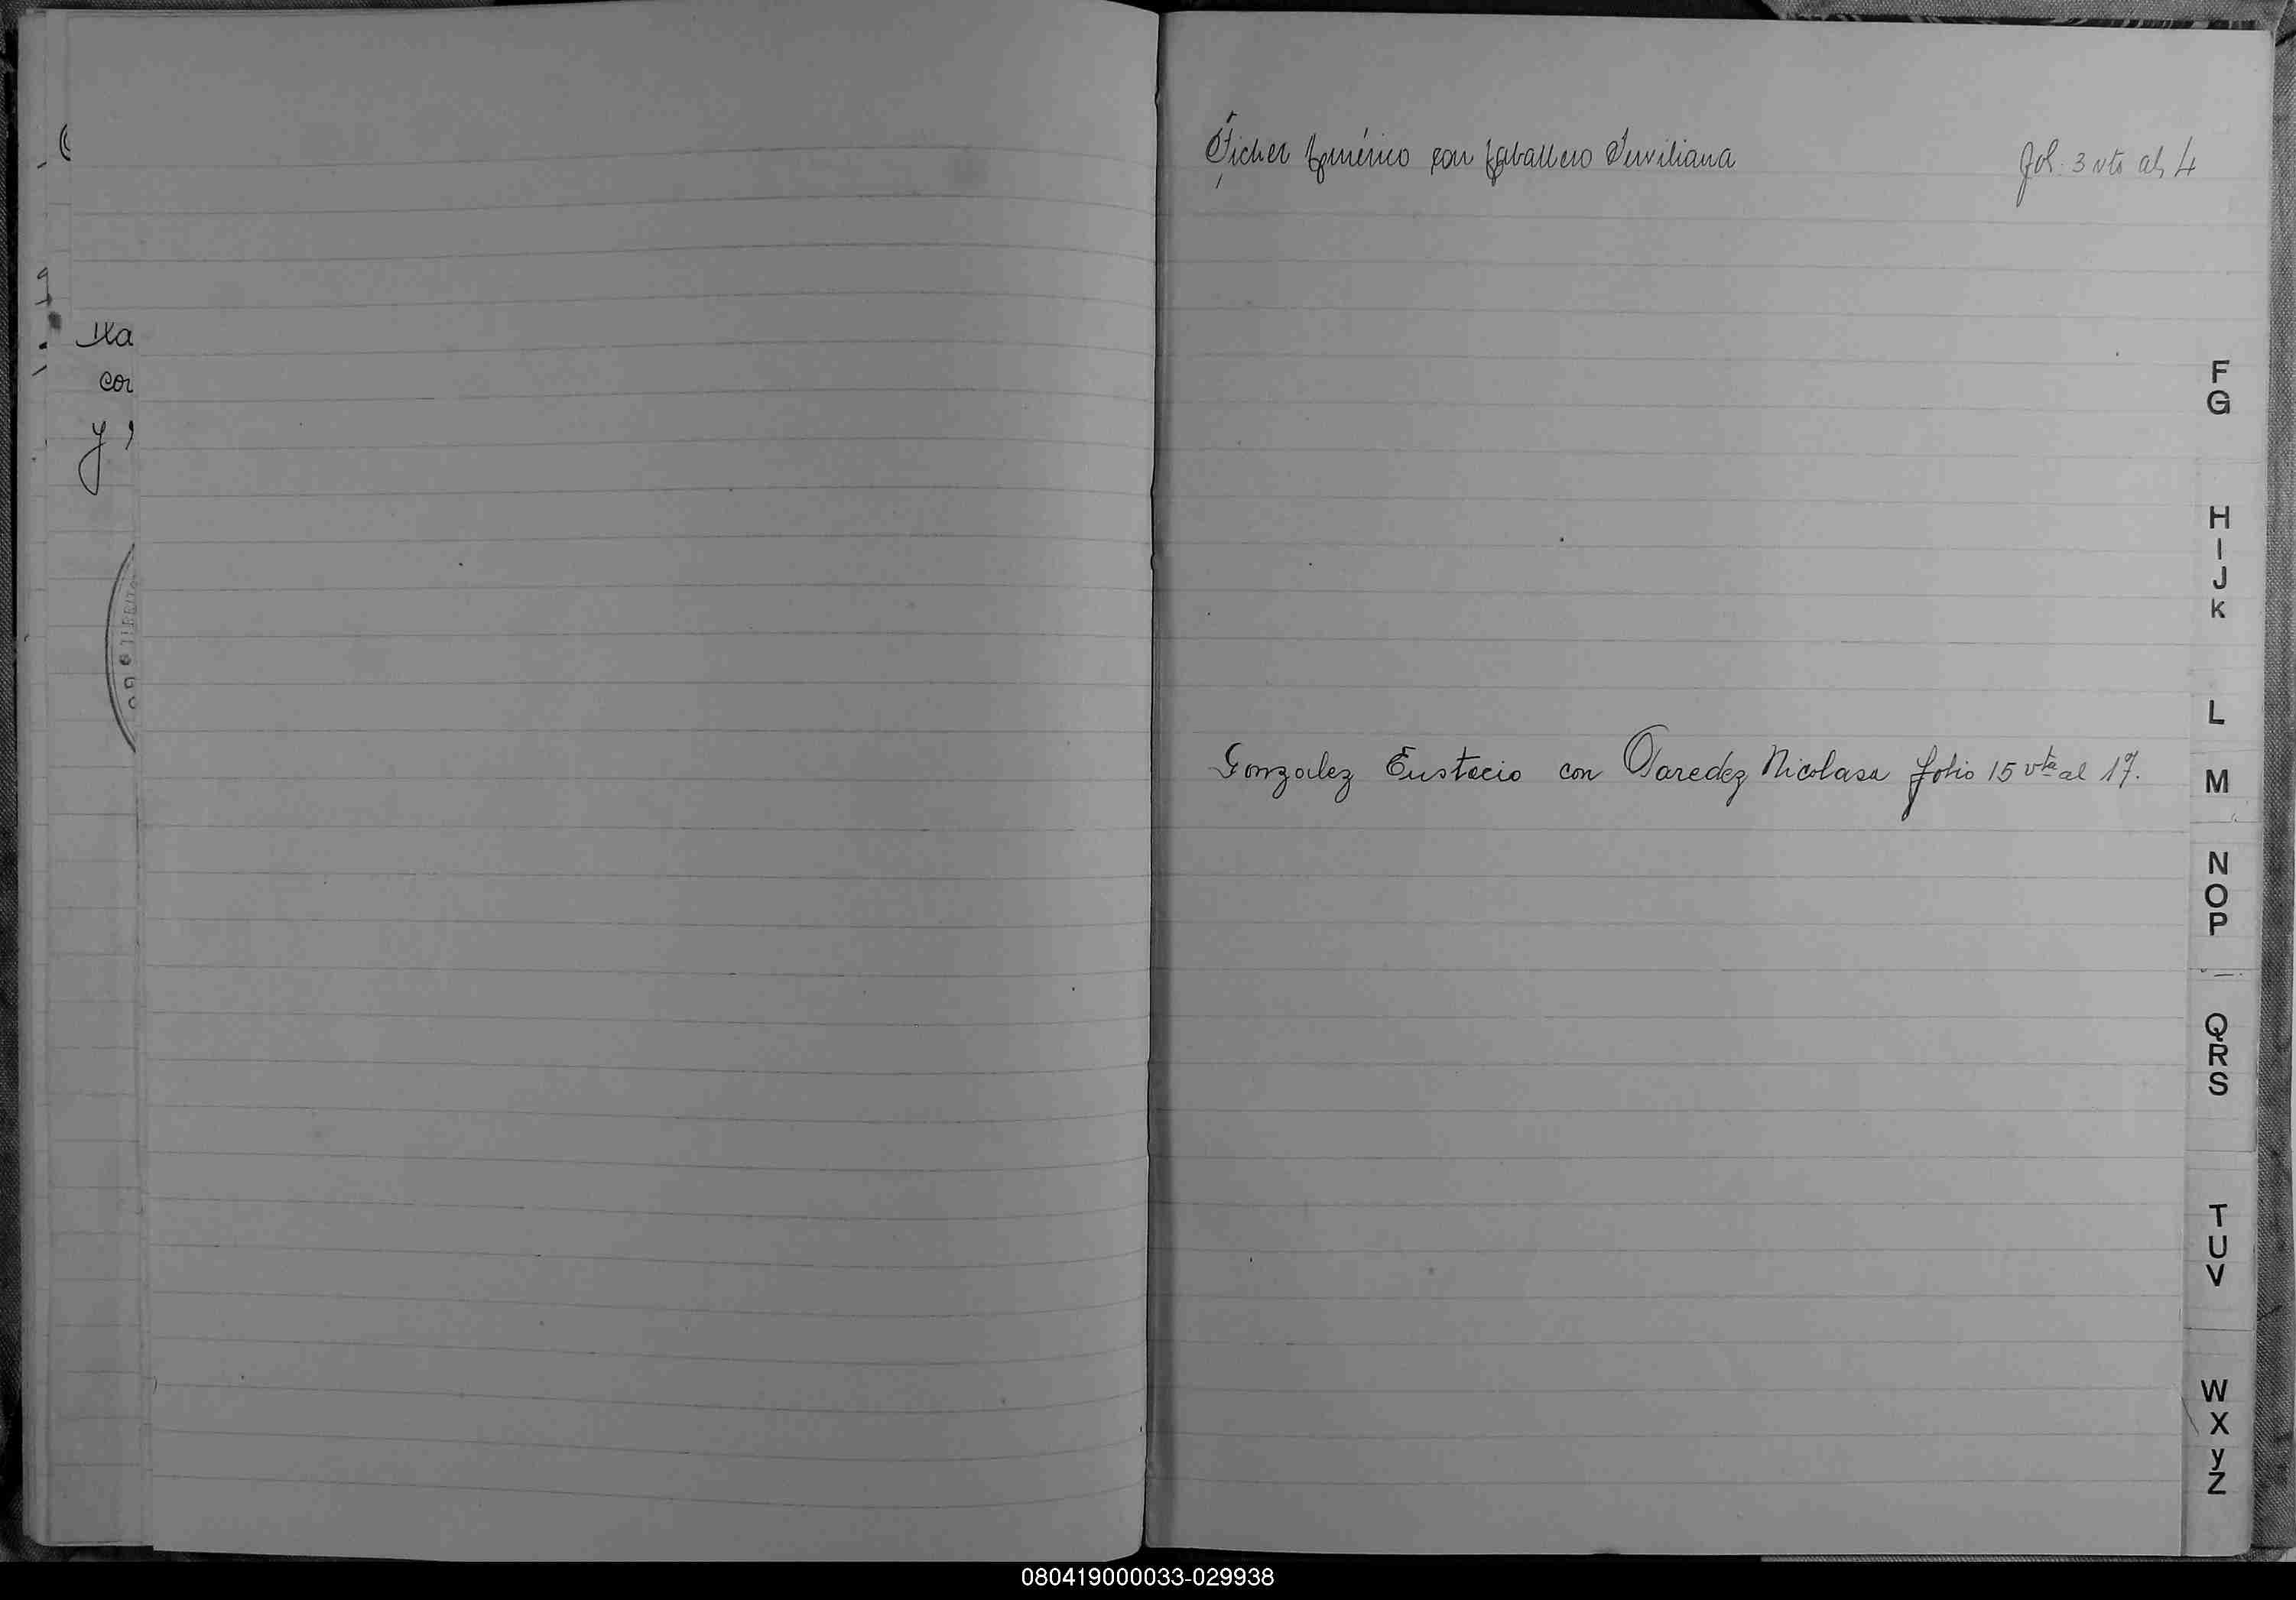 Ma
con
y
TERRITO
Ficher Américo con Caballero Serviliana fol. 3 vto al 4
F
G
H
I
J
K
L
Gonzalez Eustacio con Paredez Nicolasa folio 15 vta al 17.
M
N
O
P
Q
R
S
T
U
V
W
X
y
Z
080419000033-029938